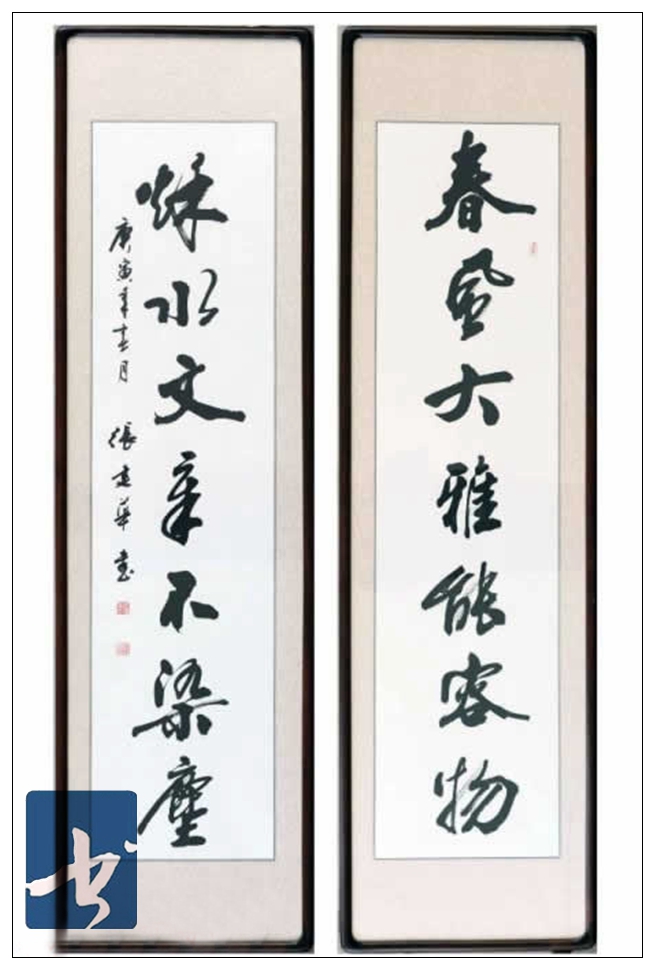 春風大雅能容物
秌水文章不染塵
庚寅年春月 張建華書
书